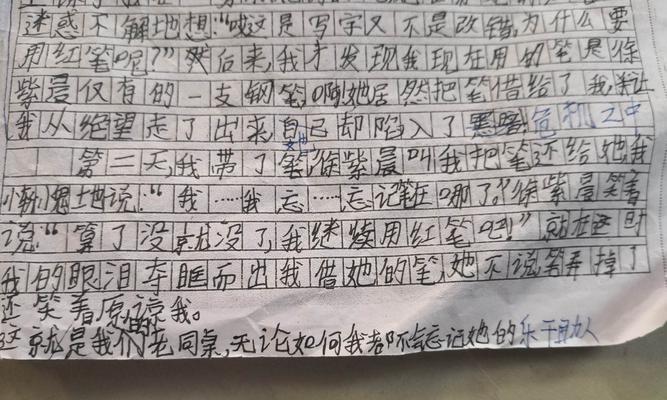 迷惑不解地想:“哎这是写字又不是改错,为什么要
用红笔呢?”然后来,我才发现我现在用的笔是徐
紫晨仅有的一支钢笔,啊!她居然把笔借给了我,让
我从绝望走了出来,自己却陷入了黑暗危机之中
第二天,我带了笔,徐紫晨叫我把笔还给她,我
小愧地说:“我……我忘……忘记笔在哪了。”徐紫晨笑着
说:“算了没就没了,我继续用红笔吧!”就在这时
我的眼泪夺眶而出,我借她的笔,她不说笔弄掉了
还笑着原谅我。
这就是我们的老同桌,无论如何我都不会忘记她的乐于助人